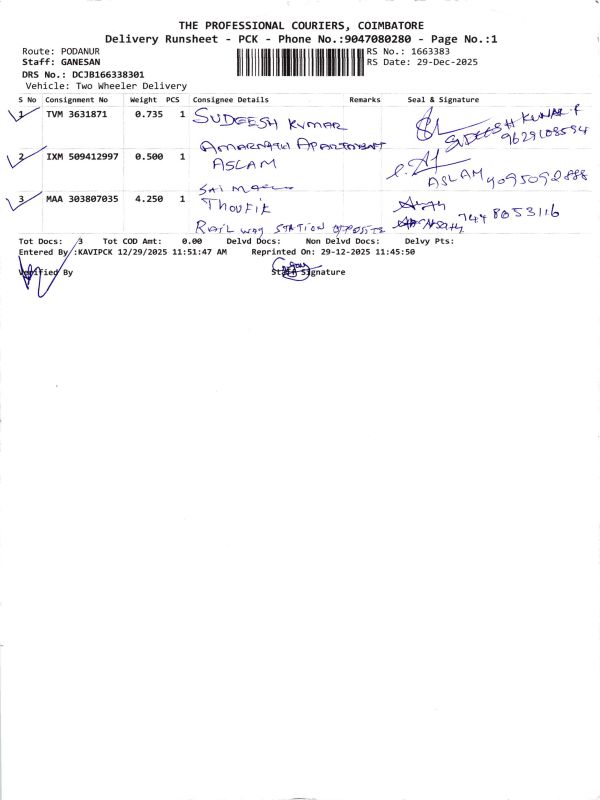 THE PROFESSIONAL COURIERS, COIMBATORE
Delivery Runsheet - PCK - Phone No.:9047080280 - Page No.:1
Route: PODANUR RS No.: 1663383
Staff: GANESAN RS Date: 29-Dec-2025
DRS No.: DCJB166338301
Vehicle: Two Wheeler Delivery
S No Consignment No Weight PCS Consignee Details Remarks Seal & Signature
1 TVM 3631871 0.735 1 SUDEESH KUMAR SUDEESH KUMAR.P
AMARNATH APARTMENT 9629108594
2 IXM 509412997 0.500 1 ASLAM ASLAM 9095092888
SAI
3 MAA 303807035 4.250 1 THOUFIK 7448053116
RAIL WAY STATION OPPOSITE
Tot Docs: 3 Tot COD Amt: 0.00 Delvd Docs: Non Delvd Docs: Delvy Pts:
Entered By :KAVIPCK 12/29/2025 11:51:47 AM Reprinted On: 29-12-2025 11:45:50
Verified By Staff Signature